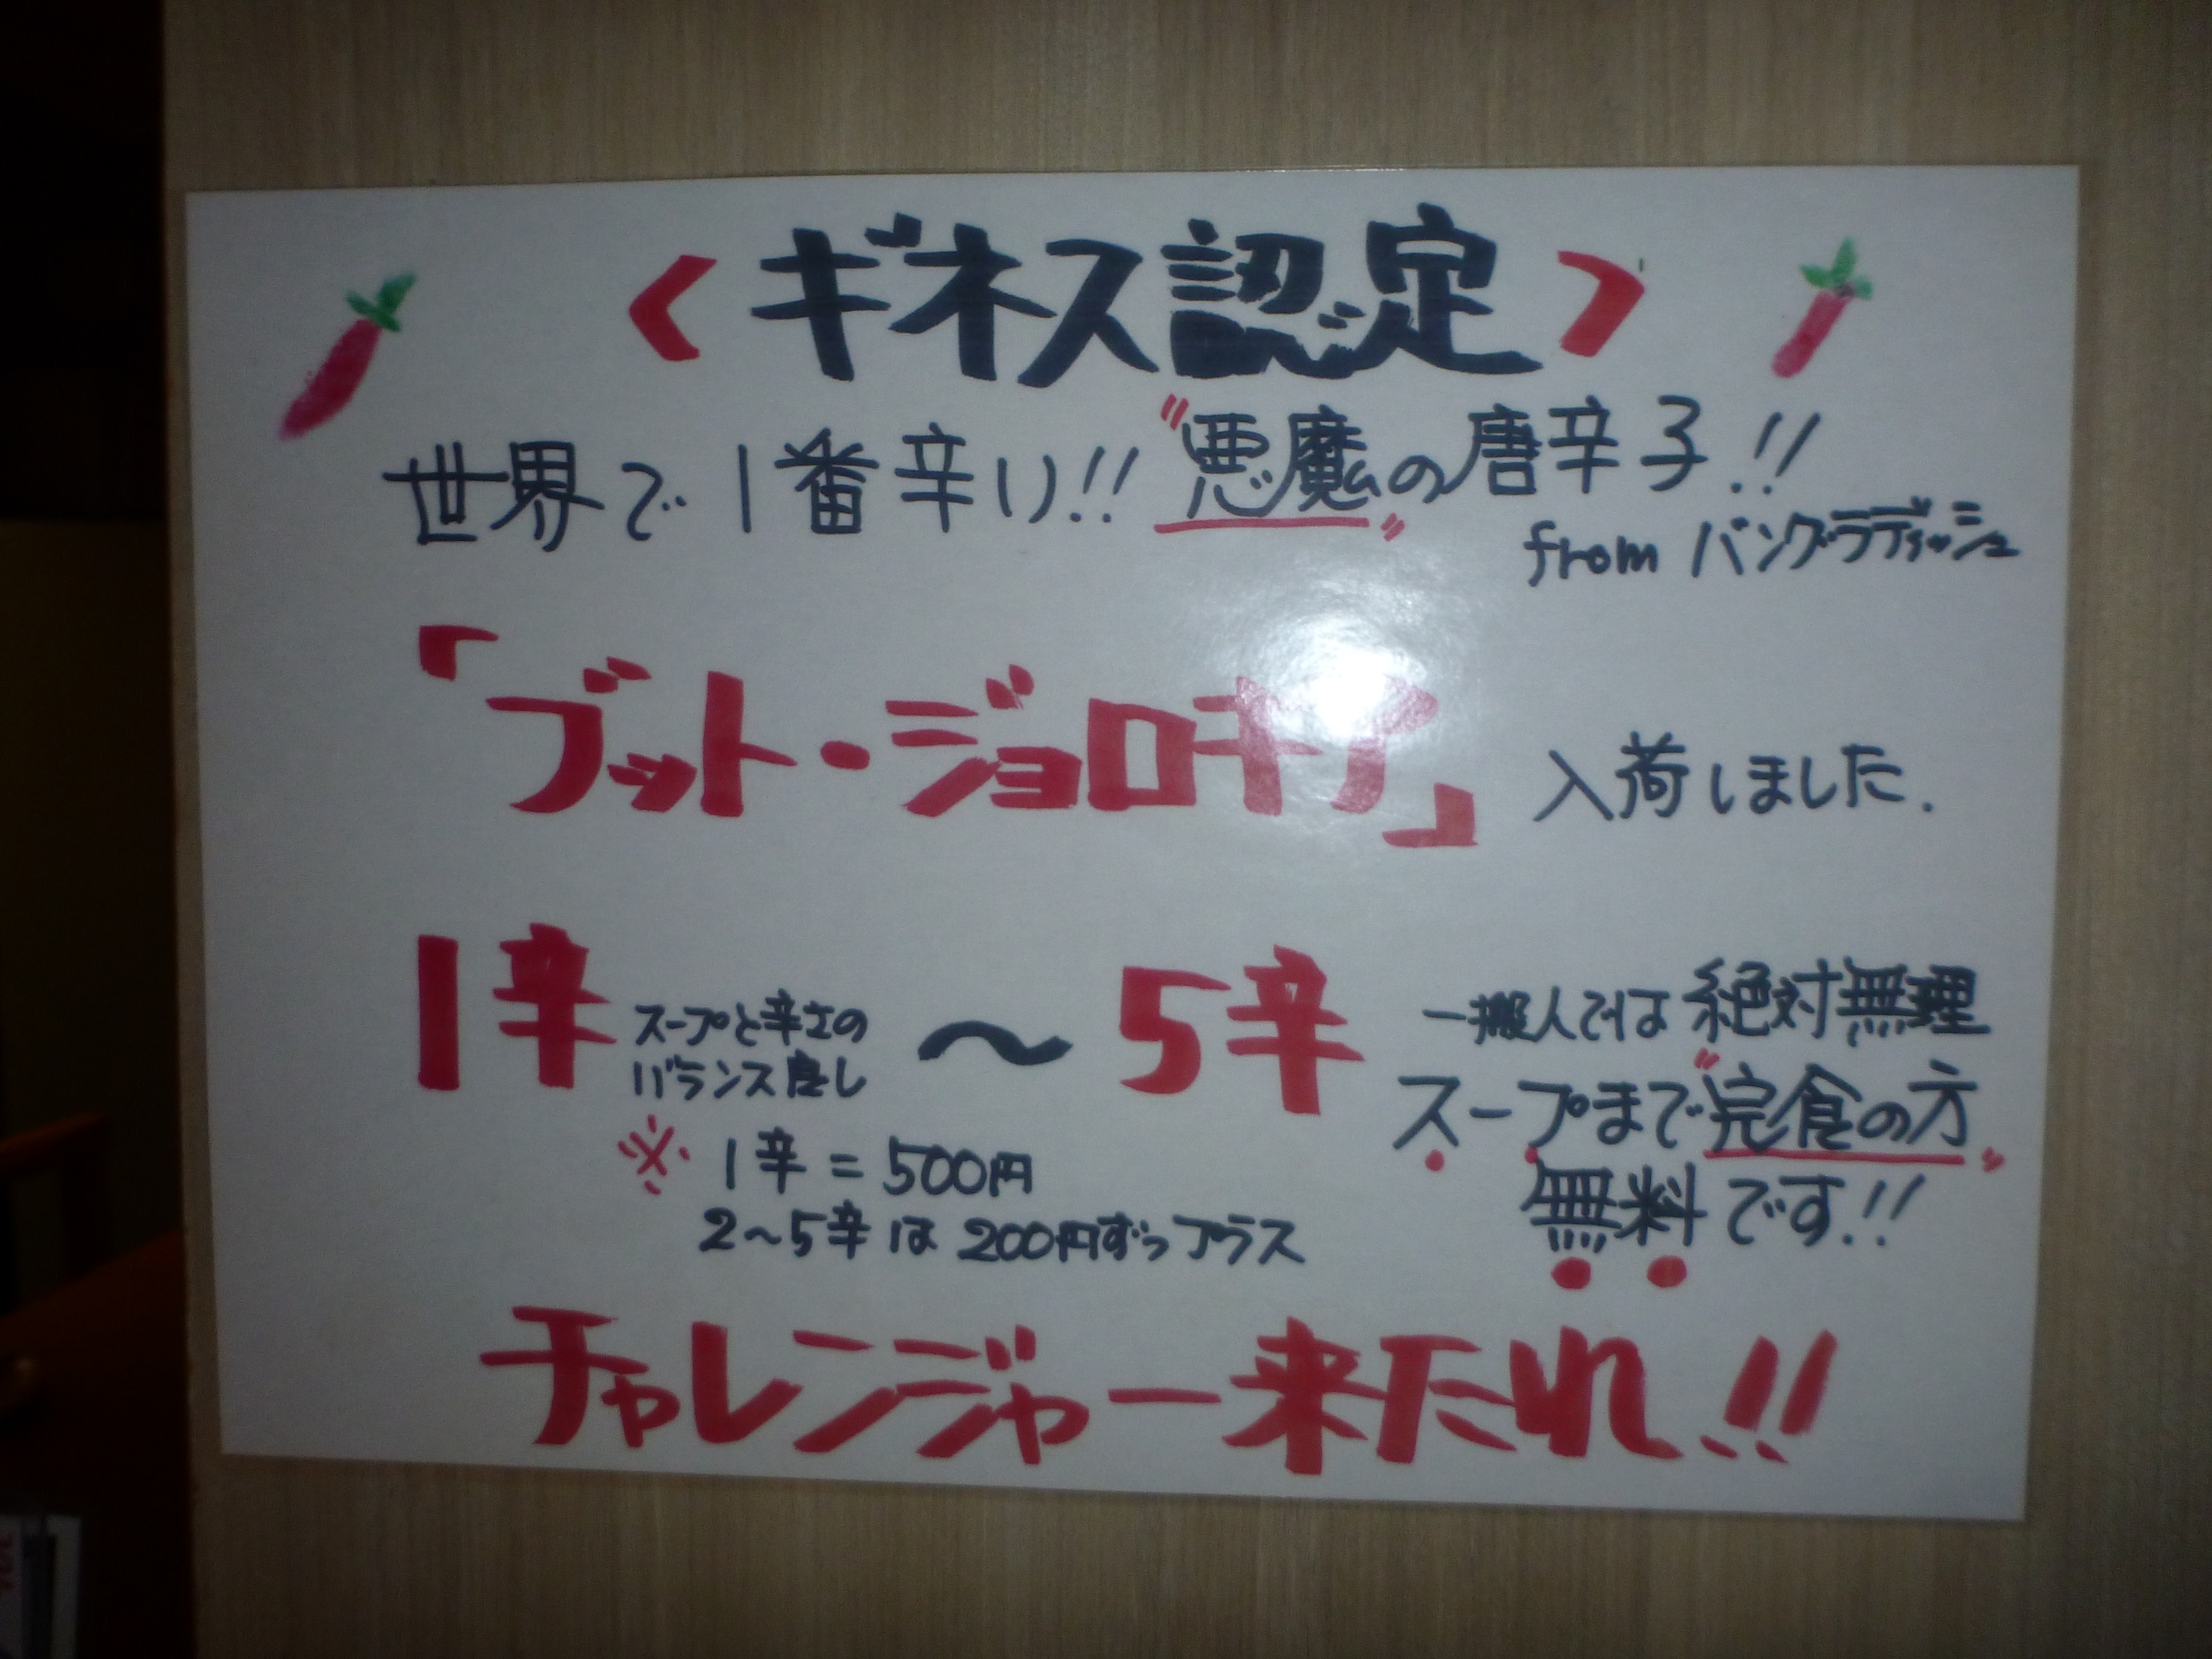 〈ギネス認定〉
世界で1番辛い!! "悪魔"の唐辛子!!
from バングラディッシュ
「ブット・ジョロキア」入荷しました.
1辛 スープと辛さのバランス良し 〜 5辛 一搬人では絶対無理
スープまで"完食の方"
無料です!!
※ 1辛 = 500円
2〜5辛は 200円ずつプラス
チャレンジャー来たれ!!